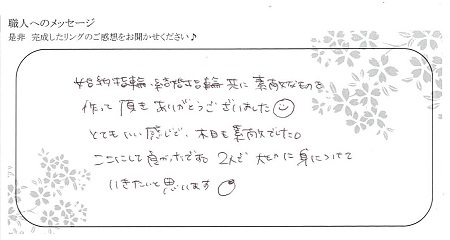 職人へのメッセージ
是非 完成したリングのご感想をお聞かせください♪
婚約指輪、結婚指輪共に素敵なものを
作って頂きありがとうございました
とてもいい感じで、木目も素敵でした。
ここにして良かったです。2人で大切に身につけて
いきたいと思います